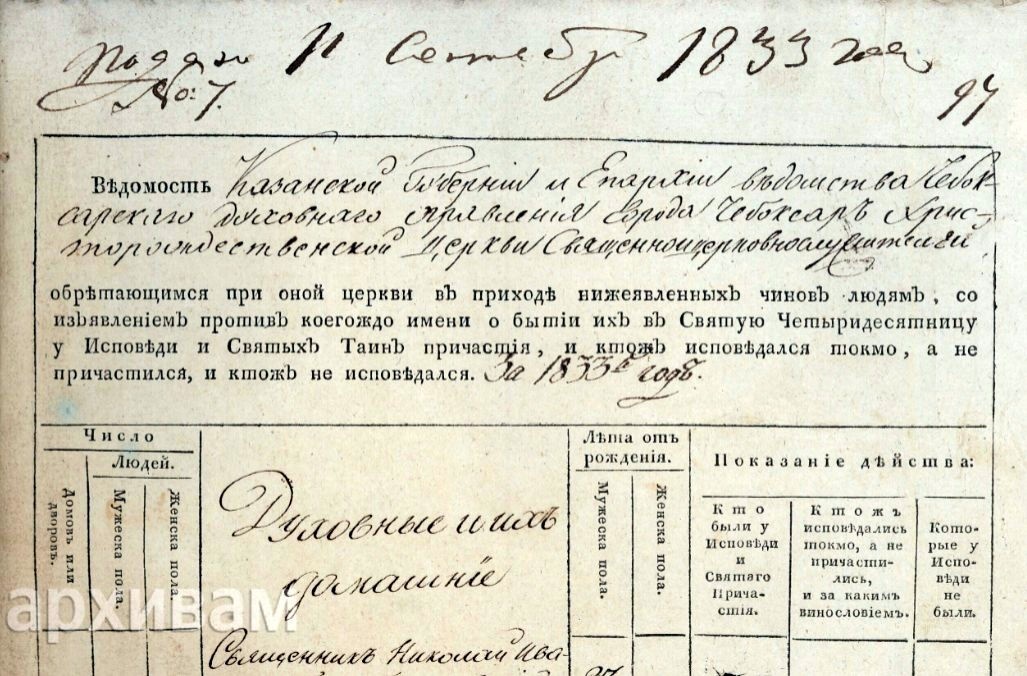 Подан 11 Сентябр 1833 года
No: 7.
97
Вѣдомость Казанской Губерніи и Епархіи вѣдомства Чебок-
сарскаго духовнаго правленія города Чебоксаръ Хрис-
торождественской Церкви Священноицерковнослужителей
обрѣтающимся при оной церкви въ приходѣ нижеявленныхъ чиновъ людямъ, со
изъявленіемъ противъ коегождо имени о бытіи ихъ въ Святую Четыридесятницу
у Исповѣди и Святыхъ Таинъ причастія, и ктожъ исповѣдался токмо, а не
причастился, и ктожъ не исповѣдался. За 1833й годъ.
Число
Людей.
Домовъ или
дворовъ.
Мужеска пола.
Женска пола.
Духовные и ихъ
домашніе
Лѣта отъ
рожденія.
Мужеска пола.
Женска пола.
Показаніе дѣйства:
Кто
были у
Исповѣди
и
Святаго
Прича-
стія.
Ктожъ
исповѣдались
токмо, а не
причасти-
лись,
и за какимъ
винословіемъ.
Кото-
рые у
Испо-
вѣди
не
были.
Священникъ Николай Ива-
архивам